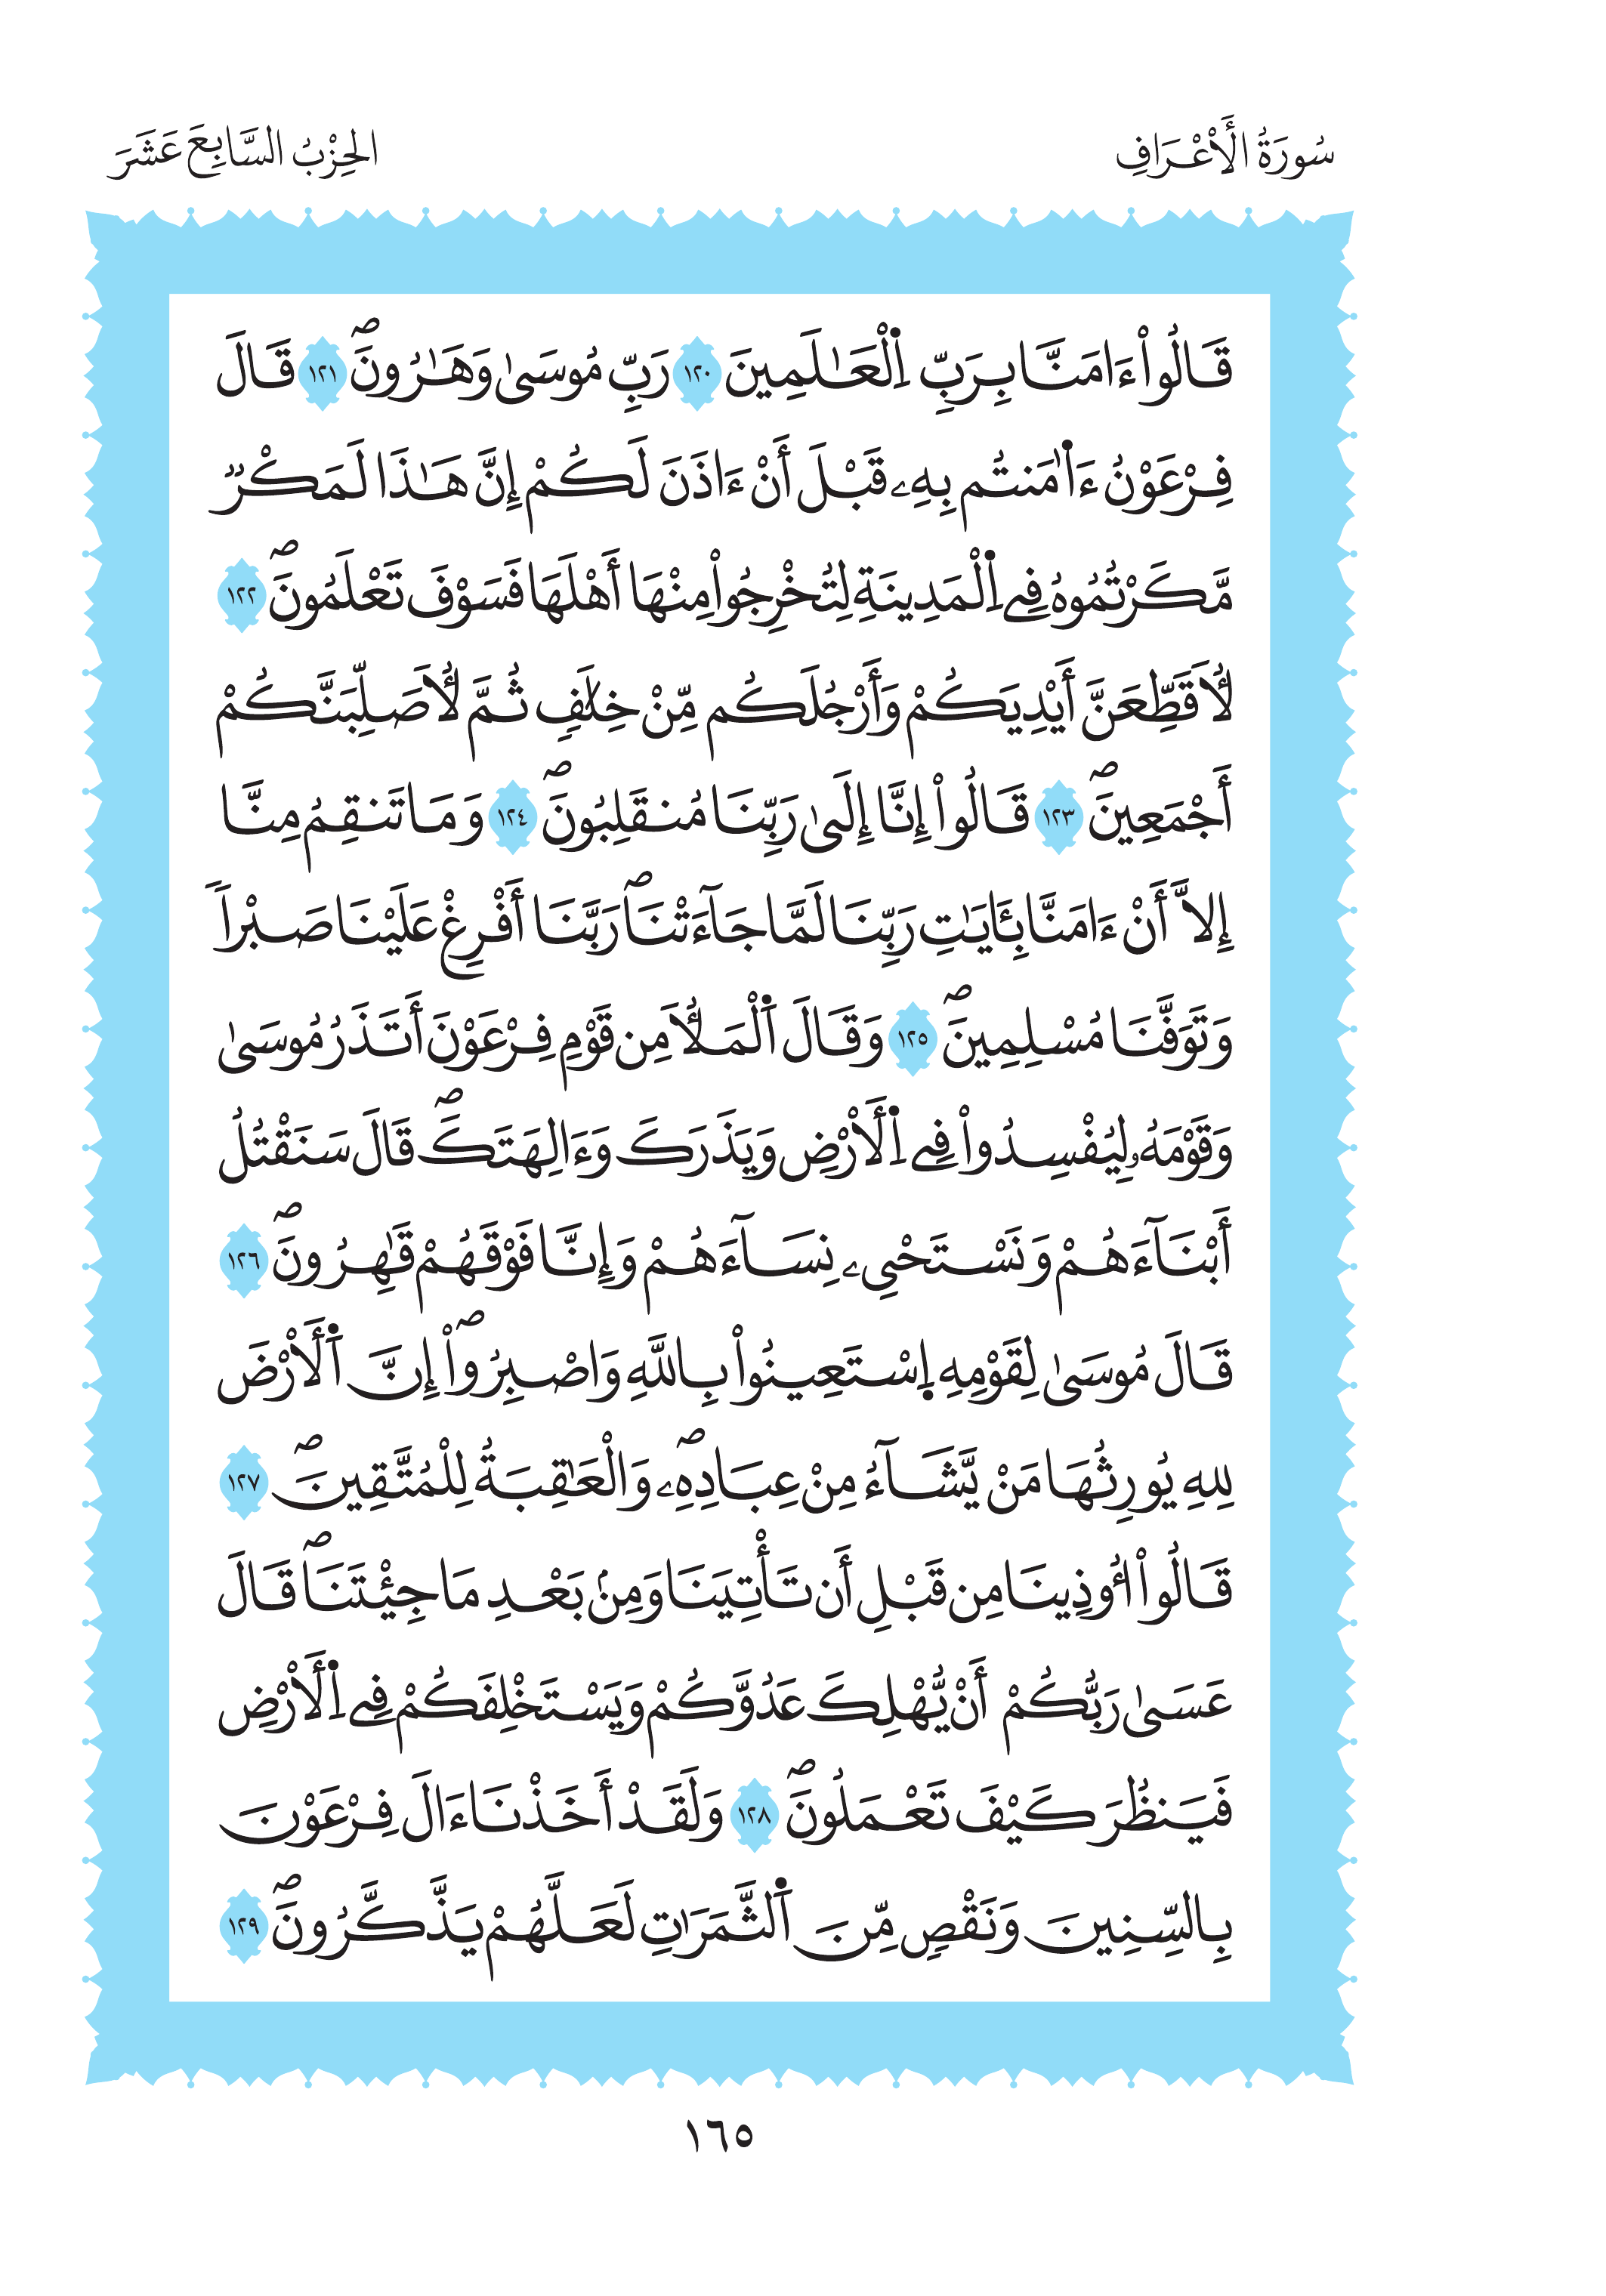 سُورَةُ الْأَعْرَافِ
الحِزْبُ السَّابِعَ عَشَرَ
قَالُواْ ءَامَنَّا بِرَبِّ اِ۬لْعَٰلَمِينَ ١٢٠ رَبِّ مُوسَىٰ وَهَٰرُونَۖ ١٢١ قَالَ
فِرْعَوْنُ ءَا۬مَنتُم بِهِۦ قَبْلَ أَنْ ءَاذَنَ لَكُمْ إِنَّ هَٰذَا لَمَكْرٌ
مَّكَرْتُمُوهُ فِے اِ۬لْمَدِينَةِ لِتُخْرِجُواْ مِنْهَا أَهْلَهَا فَسَوْفَ تَعْلَمُونَۖ ١٢٢
لَأُقَطِّعَنَّ أَيْدِيَكُمْ وَأَرْجُلَكُم مِّنْ خِلَٰفٍ ثُمَّ لَأُصَلِّبَنَّكُمْ
أَجْمَعِينَۖ ١٢٣ قَالُواْ إِنَّا إِلَىٰ رَبِّنَا مُنقَلِبُونَۖ ١٢٤ وَمَا تَنقِمُ مِنَّا
إِلَّا أَنْ ءَامَنَّا بِـَٔايَٰتِ رَبِّنَا لَمَّا جَآءَتْنَاۖ رَبَّنَا أَفْرِغْ عَلَيْنَا صَبْراً
وَتَوَفَّنَا مُسْلِمِينَۖ ١٢٥ وَقَالَ اَ۬لْمَلَأُ مِن قَوْمِ فِرْعَوْنَ أَتَذَرُ مُوسَىٰ
وَقَوْمَهُۥ لِيُفْسِدُواْ فِے اِ۬لْأَرْضِ وَيَذَرَكَ وَءَالِهَتَكَۖ قَالَ سَنَقْتُلُ
أَبْنَآءَهُمْ وَنَسْتَحْيِۦ نِسَآءَهُمْ وَإِنَّا فَوْقَهُمْ قَٰهِرُونَۖ ١٢٦
قَالَ مُوسَىٰ لِقَوْمِهِ اِ۪سْتَعِينُواْ بِاللَّهِ وَاصْبِرُواْۖ إِنَّ اَ۬لْأَرْضَ
لِلهِ يُورِثُهَا مَنْ يَّشَآءُ مِنْ عِبَادِهِۦۖ وَالْعَٰقِبَةُ لِلْمُتَّقِينَۖ ١٢٧
قَالُواْ أُوذِينَا مِن قَبْلِ أَن تَأْتِيَنَا وَمِنۢ بَعْدِ مَا جِئْتَنَاۖ قَالَ
عَسَىٰ رَبُّكُمْ أَنْ يُّهْلِكَ عَدُوَّكُمْ وَيَسْتَخْلِفَكُمْ فِے اِ۬لْأَرْضِ
فَيَنظُرَ كَيْفَ تَعْمَلُونَۖ ١٢٨ وَلَقَدْ أَخَذْنَا ءَالَ فِرْعَوْنَ
بِالسِّنِينَ وَنَقْصٍ مِّنَ اَ۬لثَّمَرَٰتِ لَعَلَّهُمْ يَذَّكَّرُونَۖ ١٢٩
١٦٥